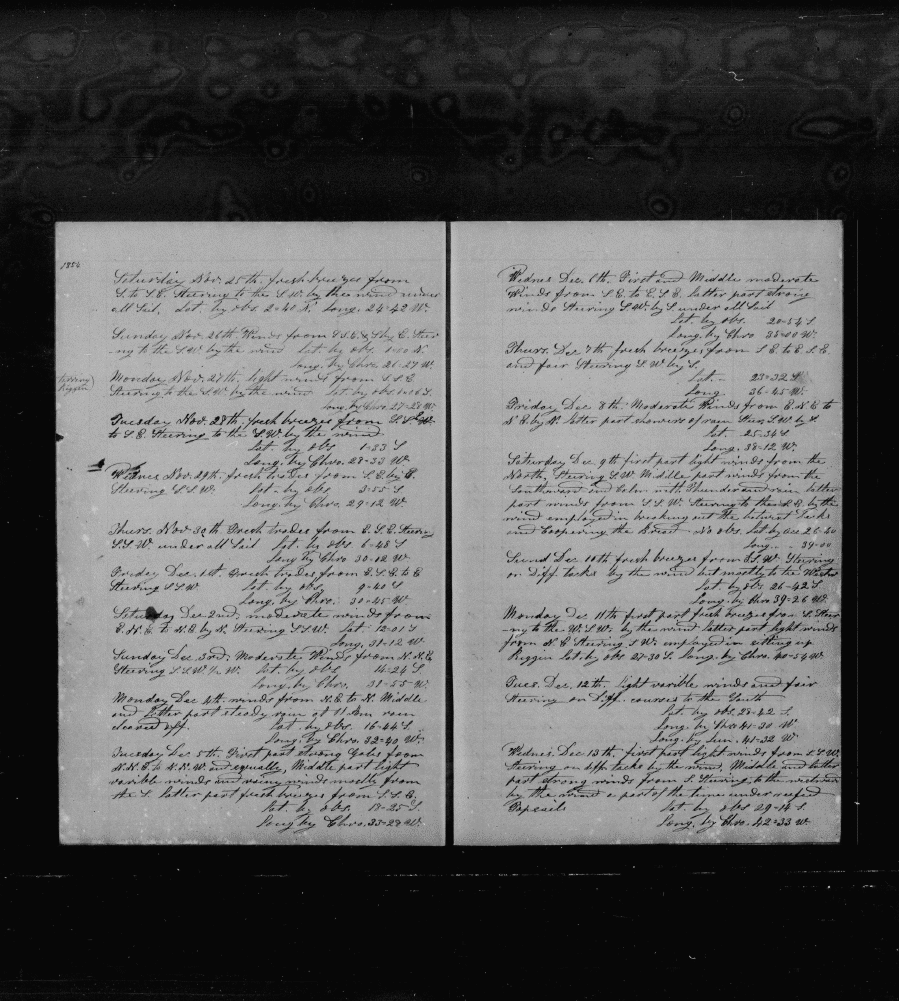 1854
Saturday Nov. 25th. fresh breezes from
S. to S.E. Steering to the S.W. by the wind under
all Sail. Lat. by obs. 2=40 N. Long. 24=42 W.
Sunday Nov. 26th Winds from S.S.E. & S. by E. Steer
-ng to the S.W. by the wind Lat. by obs. N.
Long. by Chro. 26-27 W.
Monday Nov. 27th. light winds from S.S.E.
Steering to the S.W. by the wind Lat. by obs. S.
Long. by Chro. 27-28 W.
Setting
Riggin
Tuesday Nov. 28th. fresh breezes from
to S.E. Steering to the S.W. by the wind
Lat. by obs 1-33 S
Long. by Chro. 28-33 W.
Wednes Nov. 29th. fresh trades from S.E. by E.
Steering S.S.W. Lat. by obs. 3-55 S
Long. by Chro. 29-12 W.
Thurs. Nov. 30th Fresh trades from E.S.E. Steering
S.S.W. under all Sail Lat. by obs. 6-48 S
Long by Chro 30-02 W.
Friday Dec. 1st. Fresh trades, from E.S.E. to E
Steering S.S.W. Lat. by obs, 9-40 S
Long. by Chro. 30-45 W.
Saturday Dec. 2nd, moderate winds from
E.N.E. to N.E. by N. Steering S.S.W. Lat. 12-01 S
Long. 31-12 W.
Sunday Dec. 3rd. Moderate Winds from N.N.E
Steering S.S.W. 1/2 W. Lat. by obs 14-24 S
Long. by Chro. 31-55 W.
Monday Dec 4th. winds from N.E. to N. Middle
and latter part steady rain at 11 Am rain
cleared off. Lat by obs. 16-44 S.
Long. by Chro. 32-40 W.
Tuesday Dec 5th. First part strong Gales from
N.N.E. to N.N.W. and squally. Middle part light
varible winds and rainy winds mostly from
the S. latter part fresh breezes from S.S.E.
Lat. by obs. 18-25 S.
Long by Chro. 33-29 W.
Wednes. Dec. 6th. First and Middle moderate
Winds from S.E. to E.S.E. latter part strong
winds Steering S.W. by S. under all Sail
Lat. by obs. 20-54 S
Long. by Chro 35-00 W.
Thurs. Dec. 7th fresh breezes, from S.E. to E.S.E.
and fair Steering S.W. by S.
Lat.- 23-32 S
Long 36-45 W.
Friday Dec. 8th. Moderate Winds from E.N.E. to
N.E. by N. latter part showers of rain Steer. S.W. by S.
Lat. 25-34 S
Long. 38-12 W.
Saturday Dec. 9th first part light winds from the
North, Steering S.W. Middle part winds from the
Southward and Calm with Thunder and rain latter
part winds from S.S.W. Steering to the S.E. by the
wind employed in breaking out the between Decks
and Coopering the Bread - No obs. Lat. by acc 26-50
Long. - - 39-00
Sund Dec 10th fresh breezes from S.S.W. Steering
on Diff. tacks by the wind but mostly to the
Lat by obs 26-42 S
Long. by Chro 39-26 W.
Monday Dec 11th first part fresh breezes from S. Steer
-ng to the W.S.W. by the wind latter part light winds
from N.E. Steering S.W. employed in setting up
Riggin Lat. by obs 27-30 S. Long. by Chro. 40-54 W.
Tues. Dec. 12th. light varible winds and fair
Steering on Diff. courses to the South
Lat by obs. 28-42 S
Long. by Chro 41-30 W
Long. by Lun. 41-32 W.
Wednes. Dec 13th. first part light winds from S.S.W.
Steering on diff tacks by the wind, Middle and latter
part strong winds from S. Steering, to the westward
by the wind a part of the time under reefed
Topsails Lat by obs 29-14 S
Long. by Chro. 42=33 W.